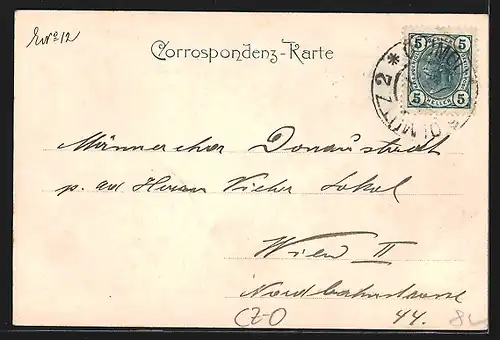 Correspondenz-Karte
5 5
5 HELLER 5
OLMÜTZ 2 *
Männerchor Donaustadt
p. ad Herrn Victor Sokol
Wien II
Nordbahnstrasse
44.
CZ-O